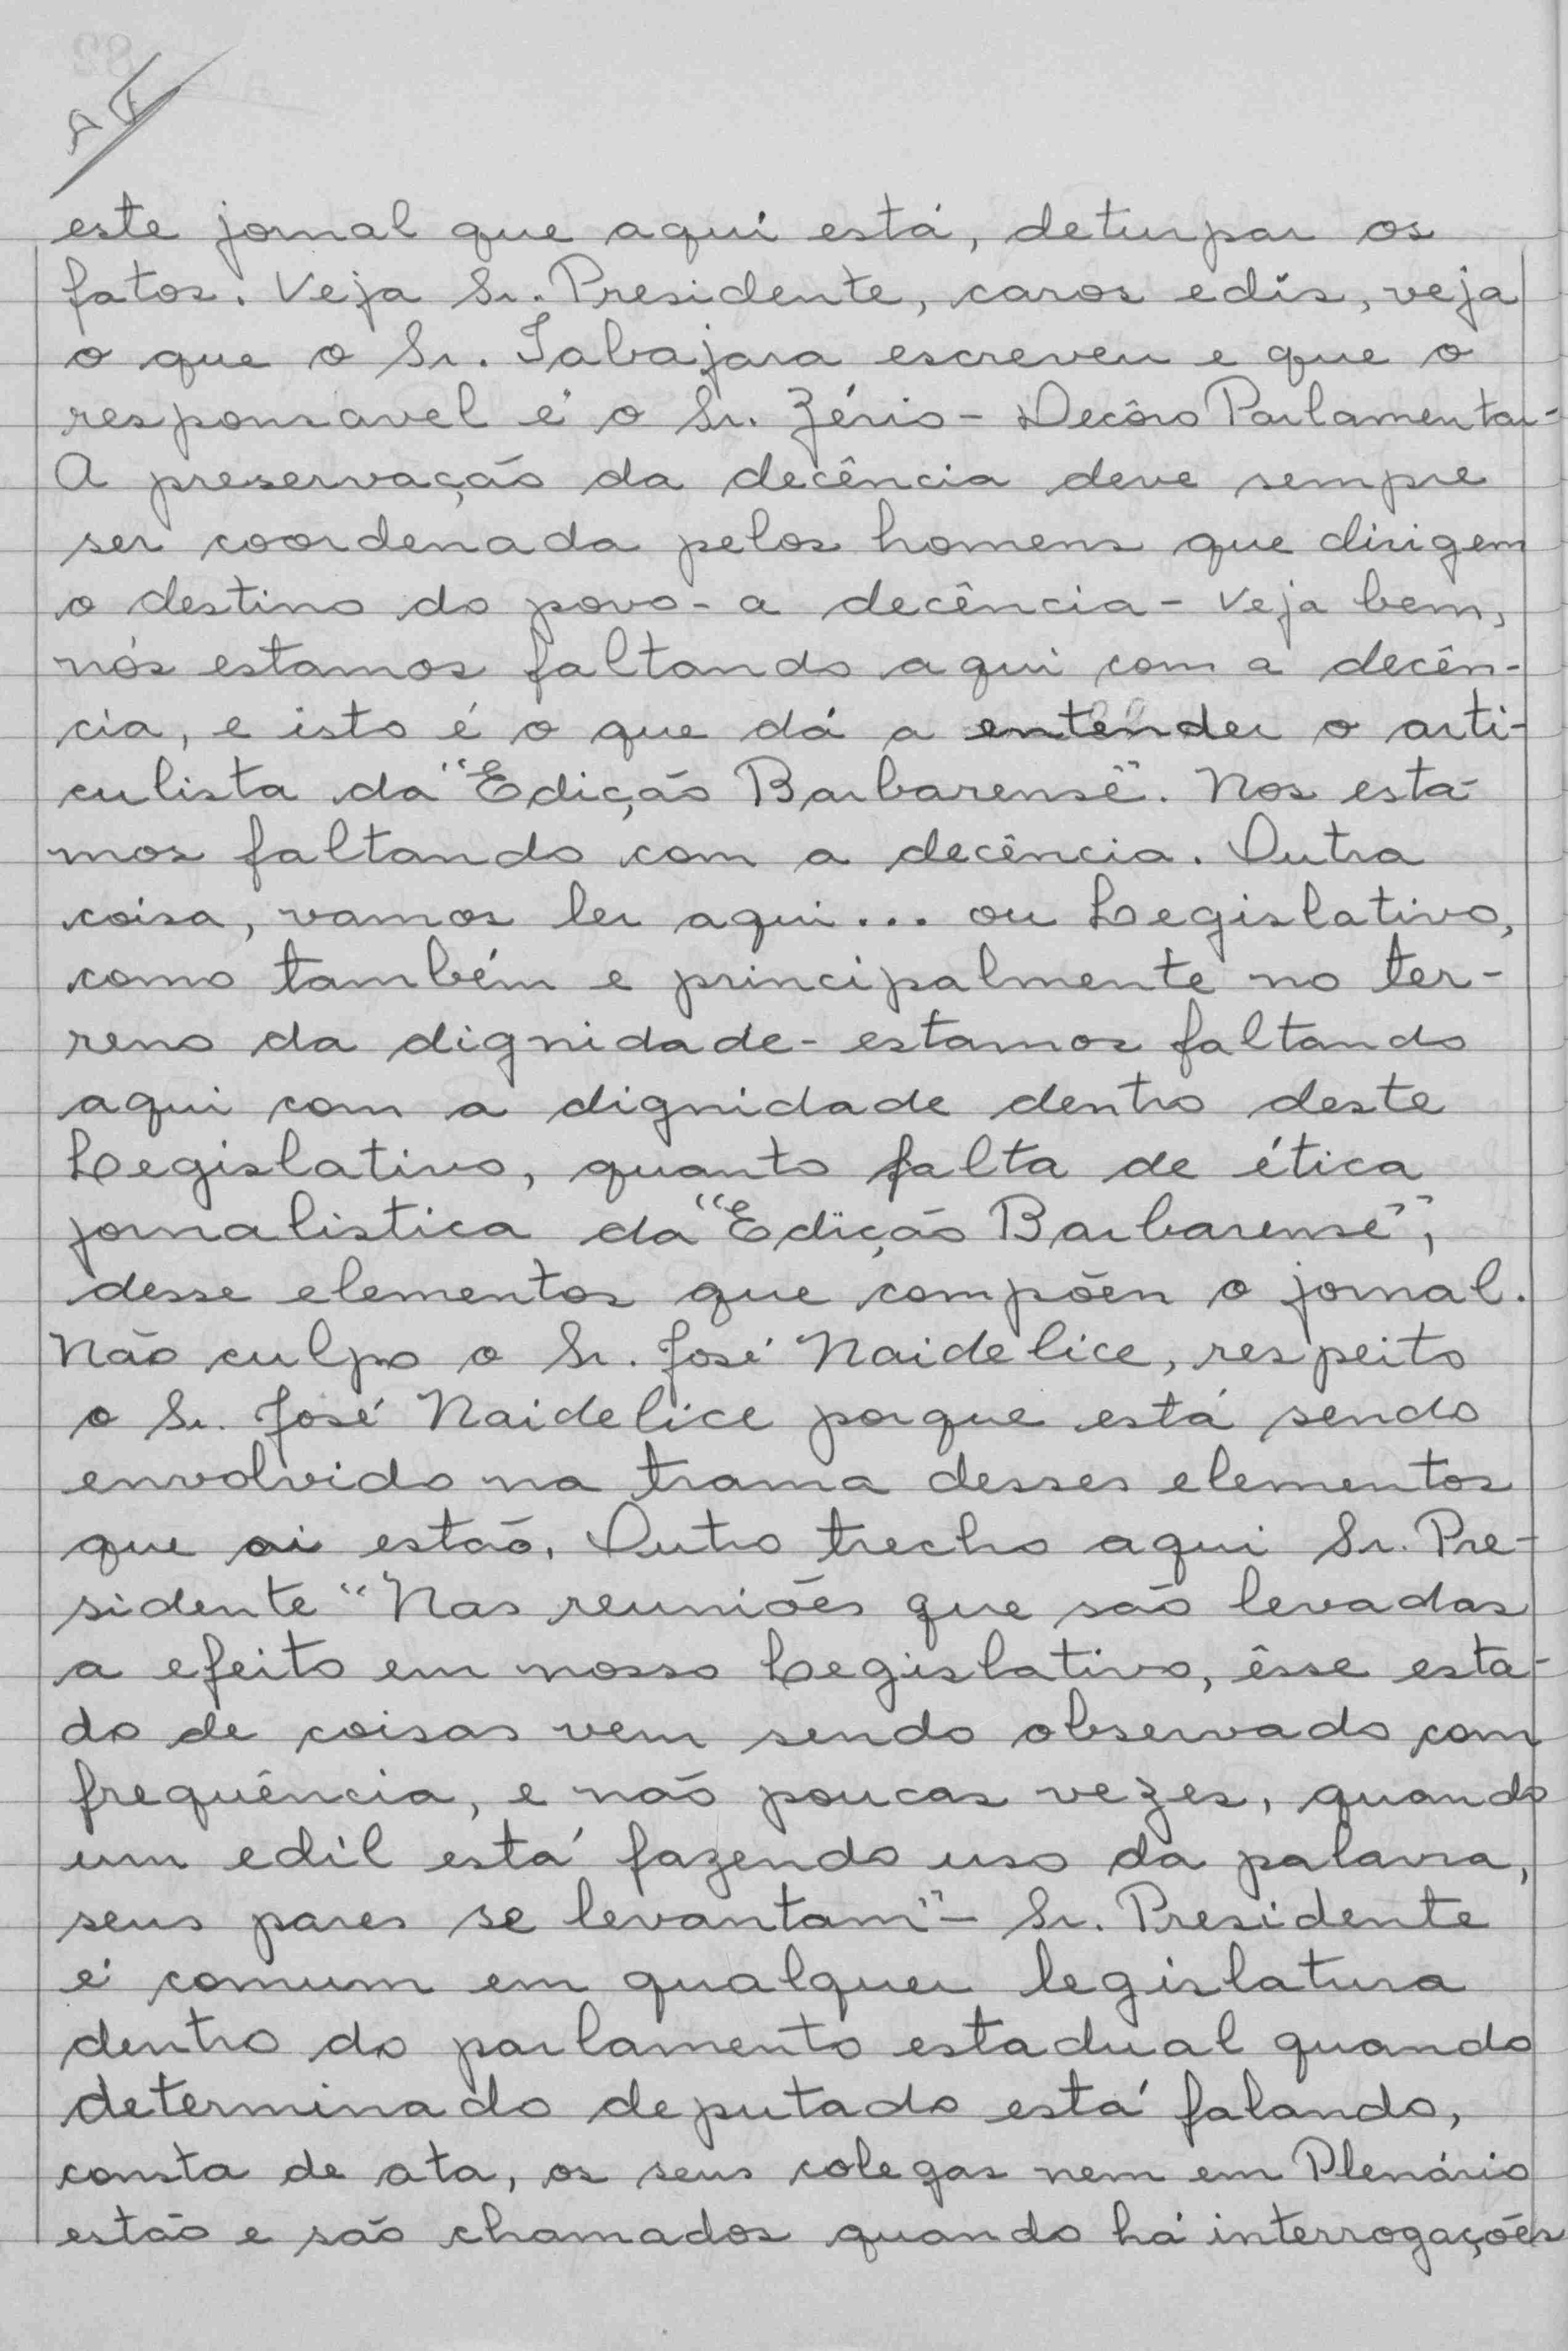 este jornal que aqui está, deturpar os
fatos. Veja Sr. Presidente, caros edis, veja
o que o Sr. Tabajara escreveu e que o
responsavel é o Sr. Zério - Decôro Parlamentar -
A preservação da decência deve sempre
ser coordenada pelos homens que dirigem
o destino do povo - a decência - Veja bem,
nós estamos faltando aqui com a decên-
cia, e isto é o que dá a entender o arti-
culista da "Edição Barbarense". Nos esta-
mos faltando com a decência. Outra
coisa, vamos ler aqui... ou Legislativo,
como também e principalmente no ter-
reno da dignidade - estamos faltando
aqui com a dignidade dentro deste
Legislativo, quanto falta de ética
jornalistica da "Edição Barbarense",
desse elementos que compõen o jornal.
Não culpo o Sr. José Naidelice, respeito
o Sr. José Naidelice porque está sendo
envolvido na trama desses elementos
que ai estão. Outro trecho aqui Sr. Pre-
sidente "Nas reuniões que são levadas
a efeito em nosso Legislativo, êsse esta-
do de coisas vem sendo observado com
frequência, e não poucas vezes, quando
um edil está fazendo uso da palavra,
seus pares se levantam" - Sr. Presidente
é comum em qualquer legislatura
dentro do parlamento estadual quando
determinado deputado está falando,
consta de ata, os seus colegas nem em Plenário
estão e são chamados quando há interrogações